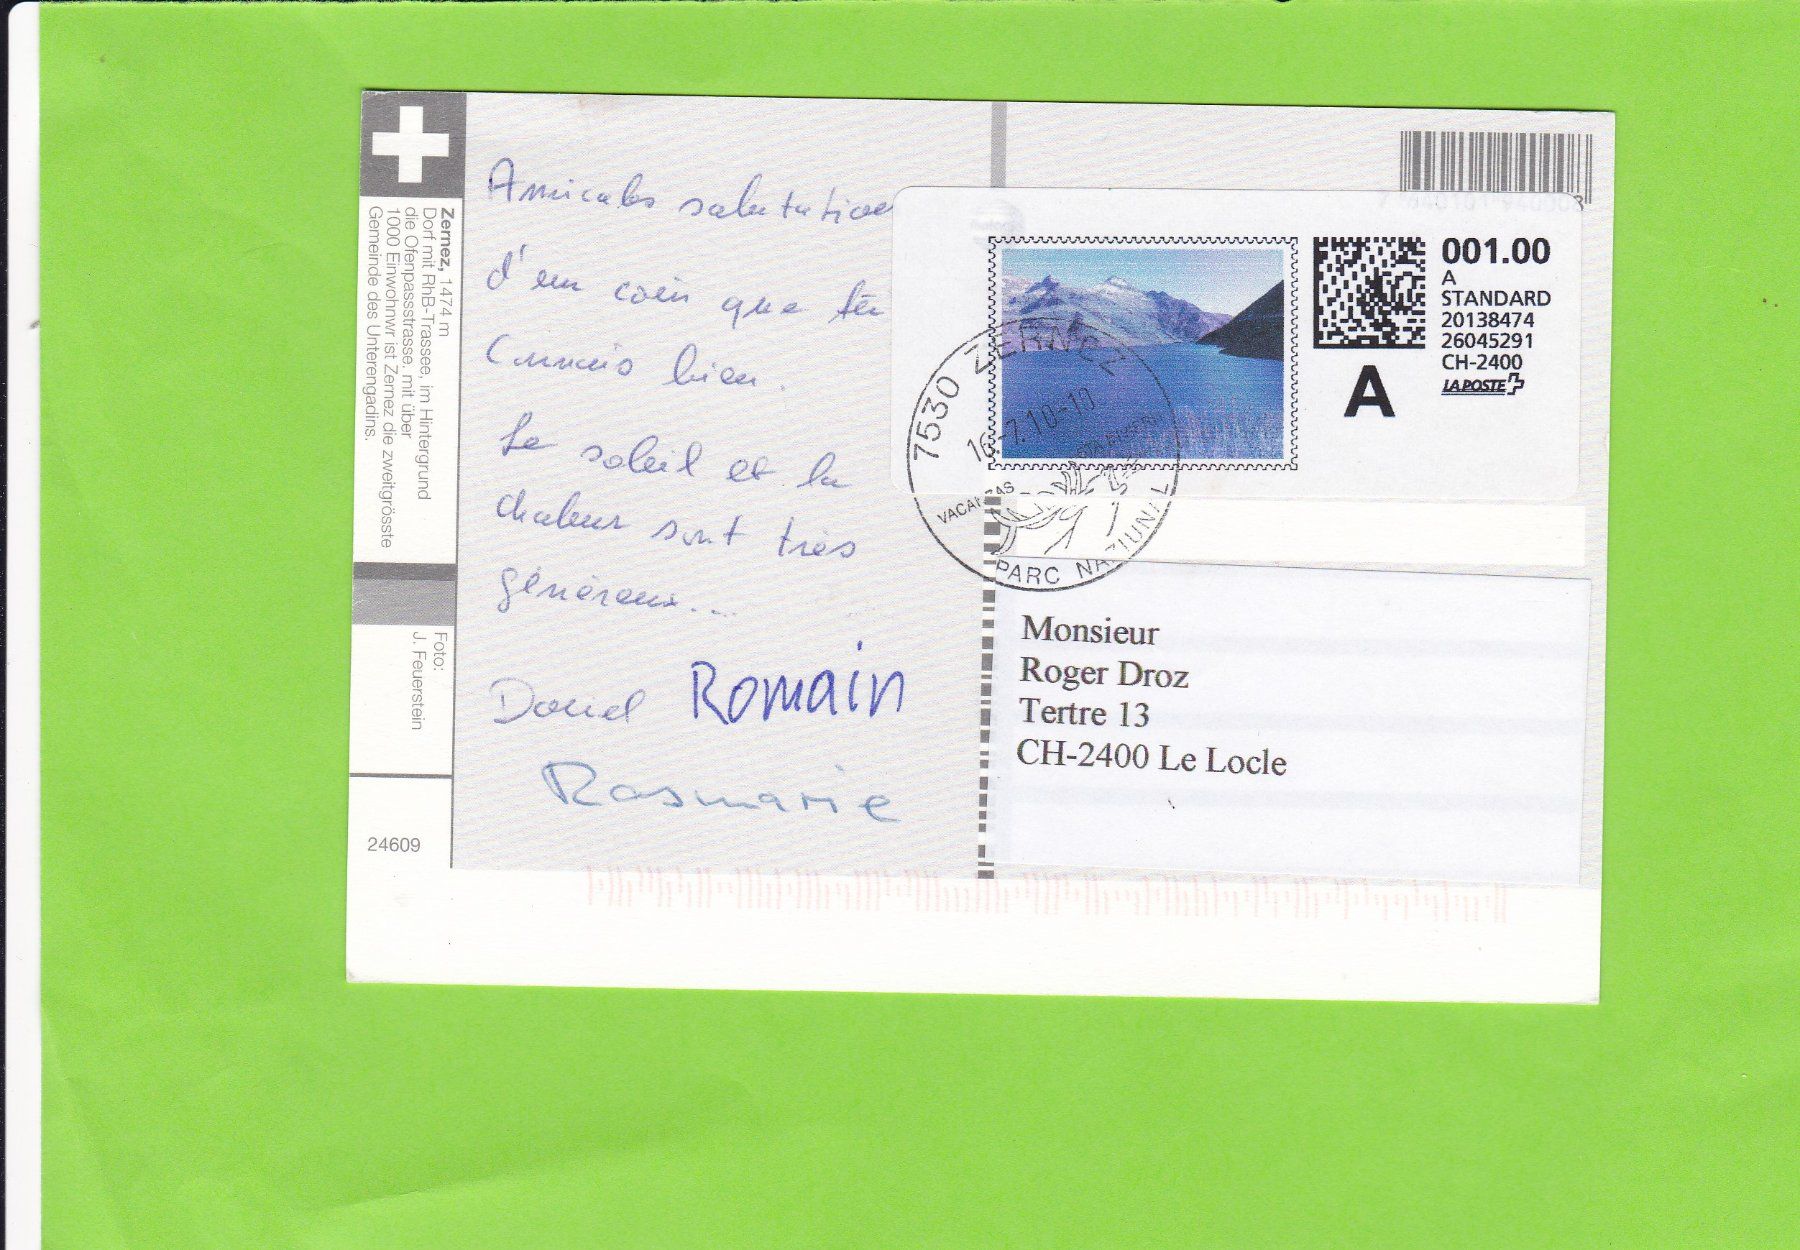 Zernez, 1474 m
Dorf mit RhB-Trassee, im Hintergrund
die Ofenpassstrasse. mit über
1000 Einwohnwr ist Zernez die zweitgrösste
Gemeinde des Unterengadins.
Foto:
J. Feuerstein
24609
Amicales salutations
d'un coin que tu
connais bien.
Le soleil et la
chaleur sont très
généreux...
Daniel Romain
Rosmarie
001.00
A
STANDARD
20138474
26045291
CH-2400
LA POSTE
A
7530 ZERNEZ
16.-7.10-10
VACANZAS
PARC NAZIUNAL
Monsieur
Roger Droz
Tertre 13
CH-2400 Le Locle